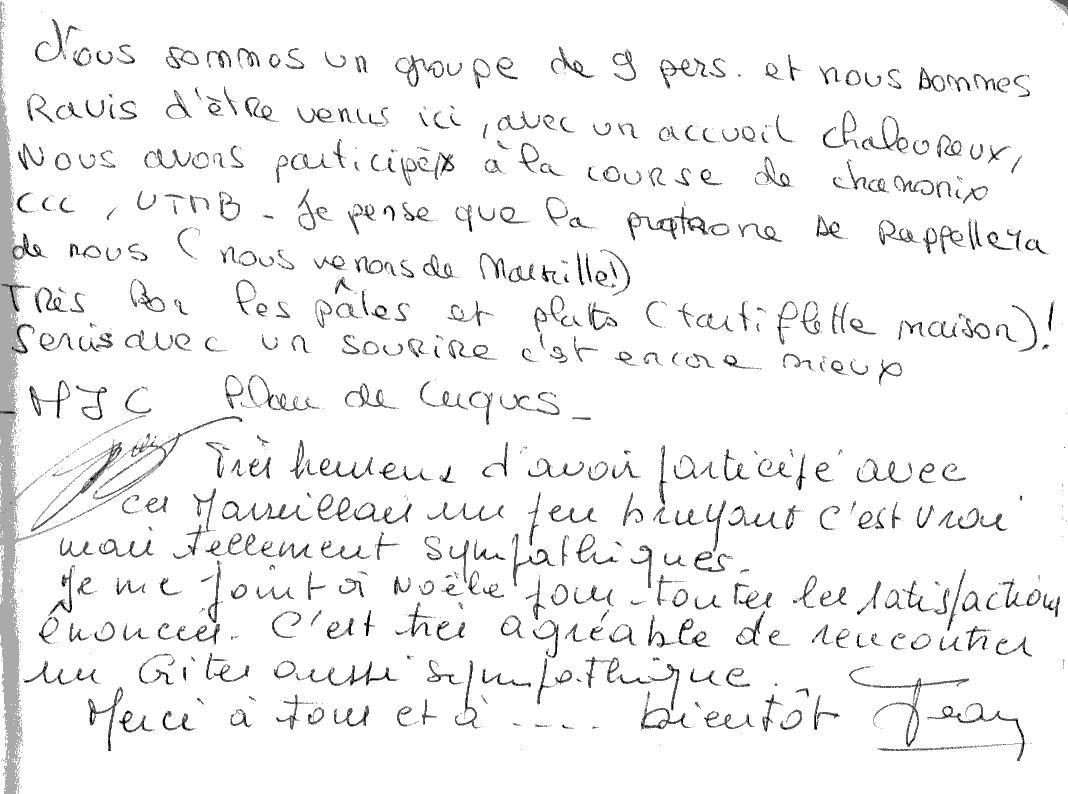 Nous sommes un groupe de 9 pers. et nous sommes
Ravis d'être venus ici, avec un accueil chaleureux,
Nous avons participés à la course de chamonix
CCC, UTMB - Je pense que la patrone se Rappellera
de nous (nous venons de Marseille!)
Très Bon les pâtes et plats (tartiflette maison)!
Servis avec un sourire c'est encore mieux
MJC Plan de Cuques -
Très heureux d'avoir participé avec
ces Marseillais un peu bruyant c'est vrai
mais tellement sympathiques -
Je me joint à Noële pour toutes les satisfactions
énoncées. C'est très agréable de rencontrer
un Gites aussi sympathique.
Merci à tous et à .... bientôt Jean